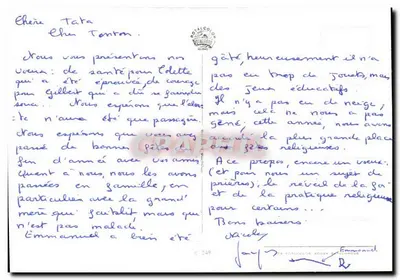 Chère Tata
Cher Tonton.
Nous vous présentons nos
voeux: de santé pour Odette
qui a été éprouvée, de courage
pour Gilbert qui a dû se faire
souci. Nous espérons que l'aler-
te n'aura été que passagère.
Nous espérons que vous avez
passé de bonnes fêtes de
fin d'année avec vos amis.
Quant à nous, nous les avons
passées en famille, en
particulier avec la grand'
mère qui faiblit, mais qui
n'est pas malade.
Emmanuel a bien été
gâté, heureusement il n'a
pas eu trop de jouets, mais
des jeux éducatifs.
Il n'y a pas eu de neige,
mais cela ne nous a pas
gêné, cette année, nous avons
la plus grande place
aux fêtes religieuses.
A ce propos, encore un voeu:
(et pour nous un sujet de
prières), le réveil de la foi
et de la pratique religieuse
pour certains...
Bons baisers.
Nicole
Emmanuel